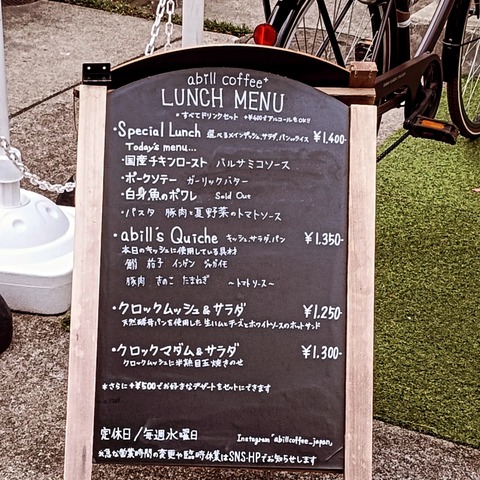 abill coffee+
LUNCH MENU
* すべてドリンクセット +¥400でアルコールもOK!!
・Special Lunch 選べるメインディッシュ,サラダ,パンorライス ¥1,400-
Today's menu...
・国産チキンロースト バルサミコソース
・ポークソテー ガーリックバター
・白身魚のポワレ Sold Out
・パスタ 豚肉と夏野菜のトマトソース
・abill's Quiche キッシュ,サラダ,パン ¥1,350-
本日のキッシュに使用している具材
茄子 インゲン ジャガイモ
豚肉 きのこ たまねぎ ～トマトソース～
・クロックムッシュ&サラダ ¥1,250-
天然酵母パンを使用した 生ハムとチーズとホワイトソースのホットサンド
・クロックマダム&サラダ ¥1,300-
クロックムッシュに半熟目玉焼きのせ
*さらに+¥500でお好きなデザートをセットにできます
定休日/毎週水曜日
Instagram "abillcoffee_japan"
※急な営業時間の変更や臨時休業はSNS・HPでお知らせします